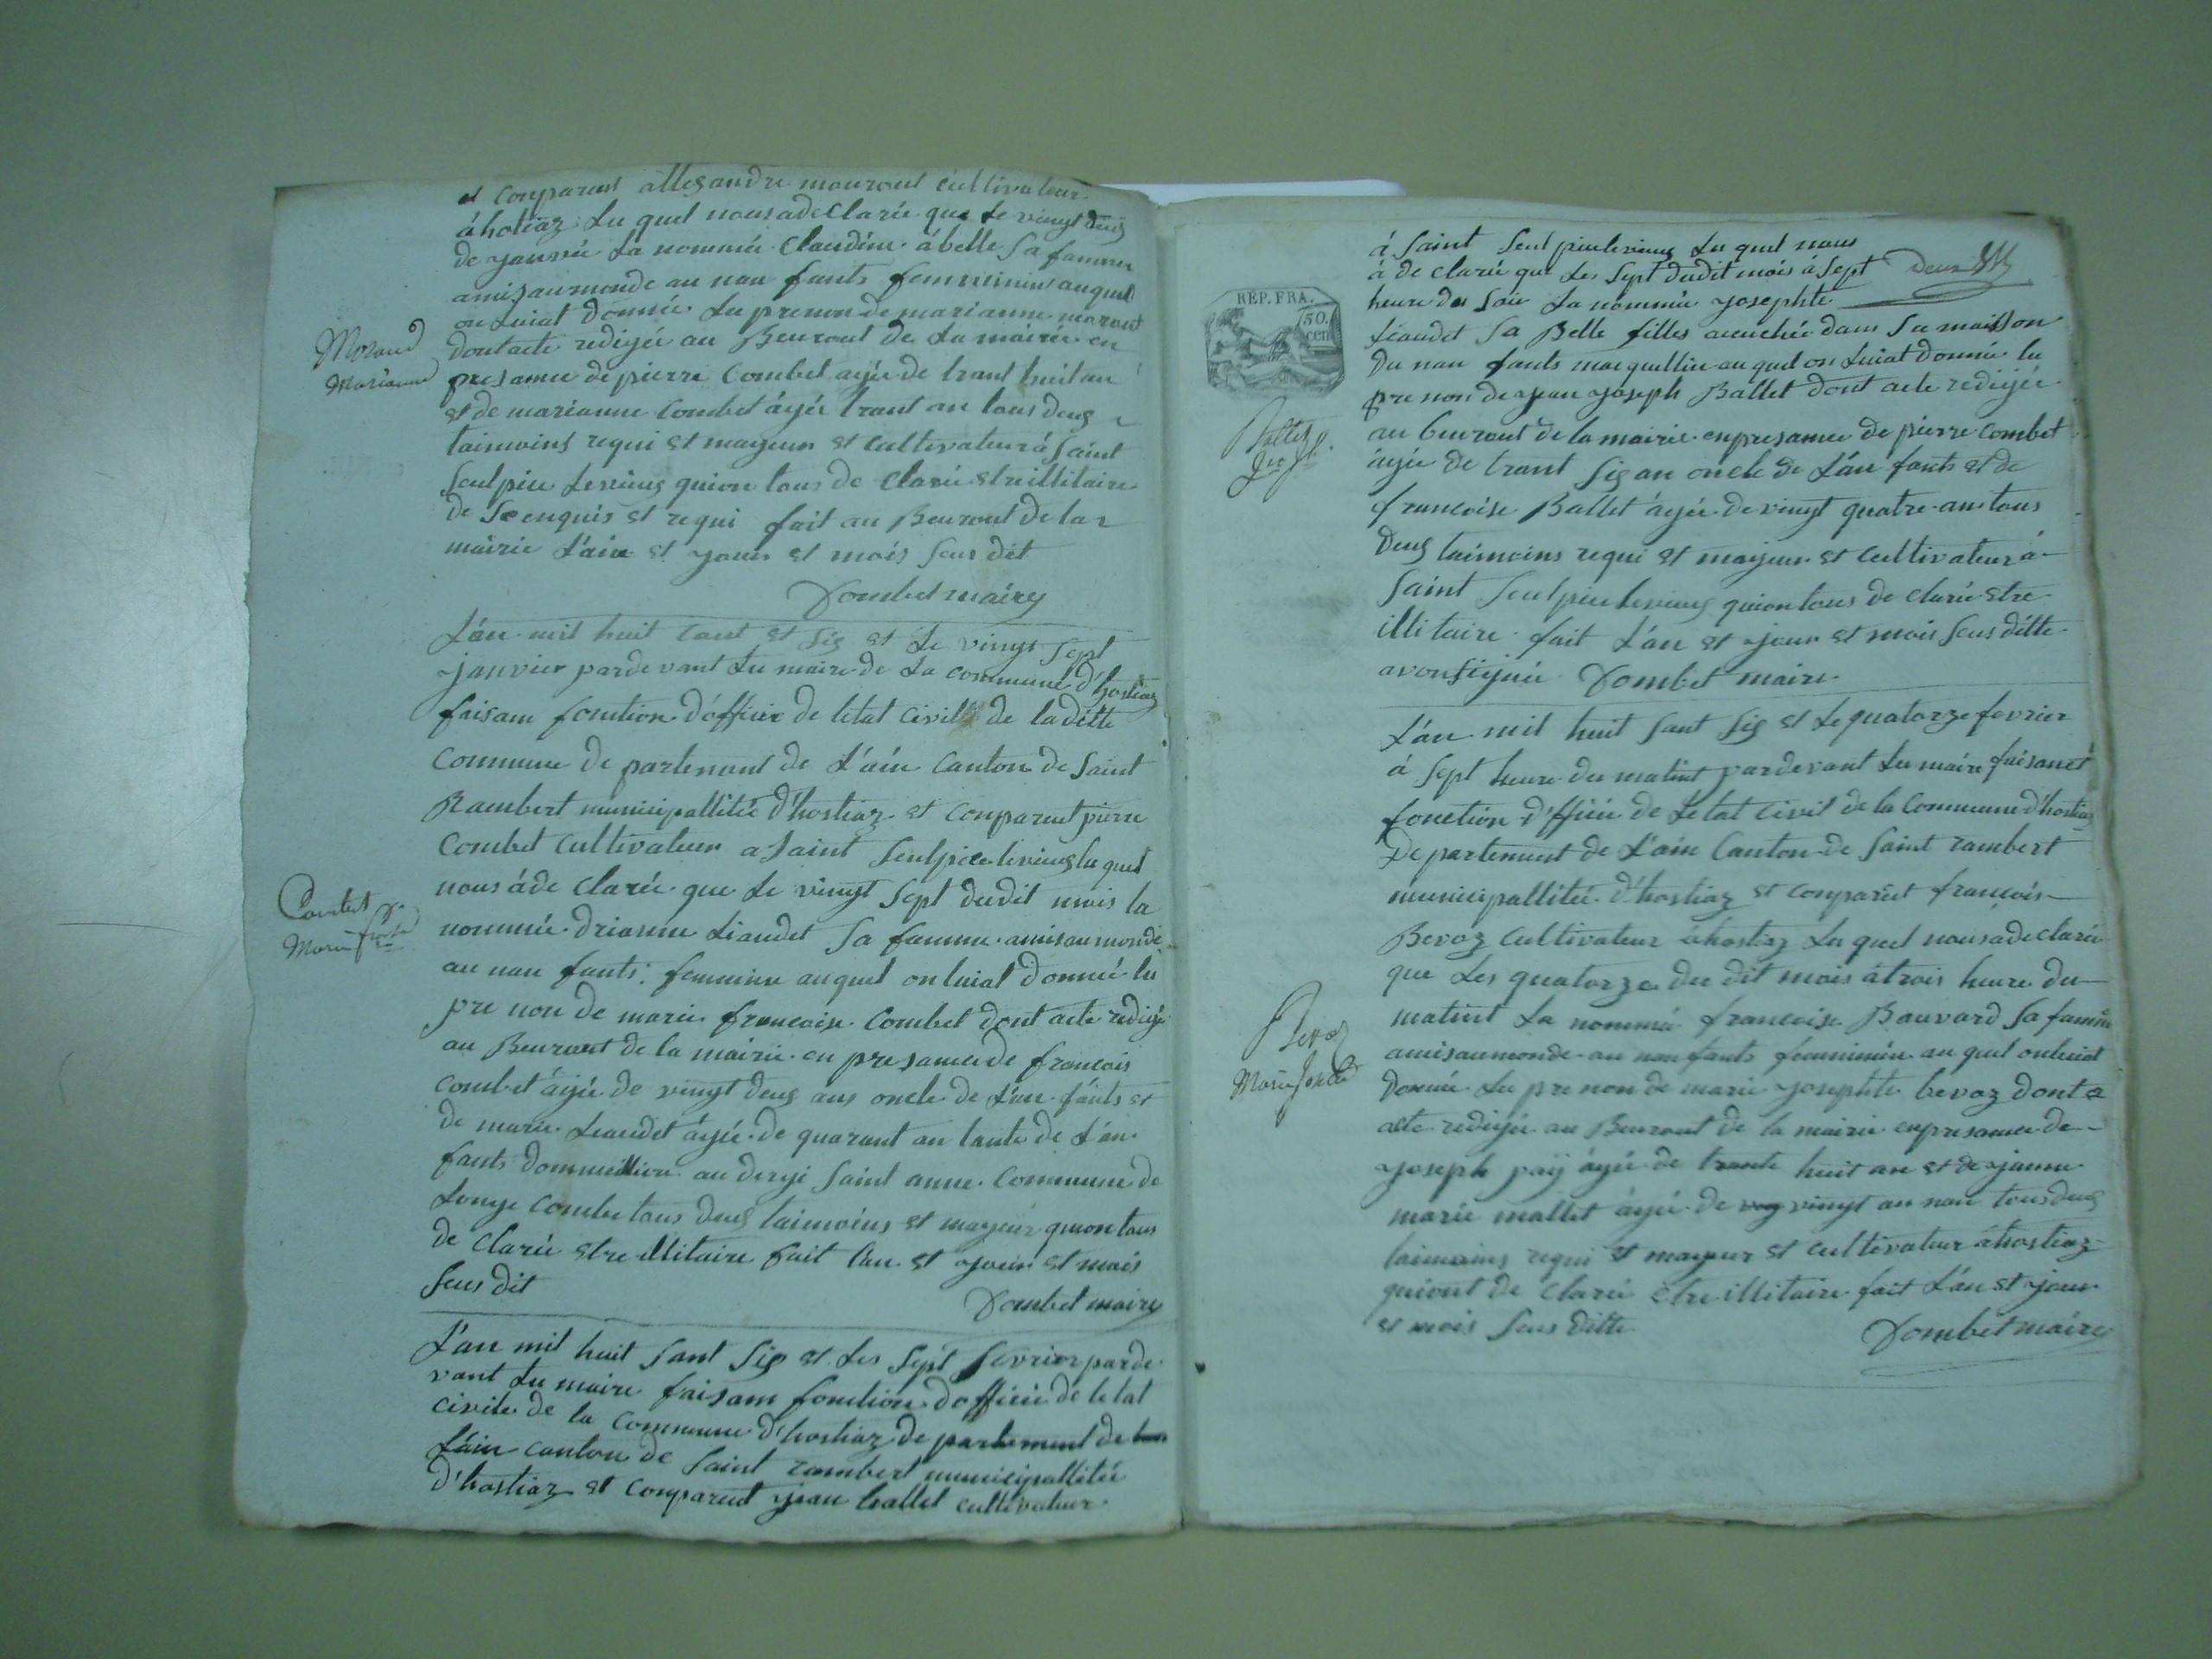 et conparent allesandre mourout cultivateur
á hotiaz Lu quel nous ade Clarée que Le vingt deus
de janvié La nommée Claudine ábelle Sa famme
amis au monde au nan fants femminin auquel
on Luiat donnée Lu prenon de marianne morant
dont acte redigée au Beurout de La mairée en
Morand
Marianne
presamce de pierre Combet agée de trant huit an
et de marianne Combet ágée trant an tous deus
taimoins requi et mageur et cultivateur á Saint
Seulpice Levieus quion tous de Claré etre illitaire
de Se enquis et requi fait au Beurout de la
mairie L'ain et jour et mois Sus dit
Dombet maire
L'an mil huit Cant et Sis et Le vingt Sept
janvier pardevant Lu maire de La commune d'hostiaz
faisam fonction d'officié de létat civil de la ditte
Commune de partemant de L'ain Canton de Saint
Rambert municipallitée d'hostiaz et conparent pierre
Combet Cultivateur a Saint Seulpice levieus lu quel
nous áde Clarée que Le vingt Sept dudit mois la
Combet
Marie fse
nommée drianne Liaudet Sa famme amis au monde
au nan fants feminin auquel on luiat donnée lu
pre non de marie francoise Combet dont acte redigé
au Beurout de la mairie en presamce de francois
combet ágée de vingt deus ans oncle de L'an fants et
de marie Liaudet ágée de quarant an tante de L'an
fants dommicillier au dergi Saint anne Commune de
Longe Combe tous deus taimoins et mageur quion tous
de Clarée etre illitaire fait l'an et jour et mois
Sus dit
Dombet maire
L'an mil huit Sant Sis et Les Sept fevrier parde
vant Lu maire faisam fonction d'officié de le tat
civile de la Commune d'hostiaz de partement de
L'ain canton de Saint rambert municipallitée
d'hostiaz et Conparent jean ballet cultivateur
á Saint Seulpice levieus Lu quel nous
á de clarée que Les Sept dudit mois á Sept
deux
heure du Soir La nommée josephte
REP. FRA.
50.
cen
Liaudet Sa Belle filles acuchée dans Sa maisson
du nan fants masquullin au quel on Luiat donnée lu
pre non de jean joseph Ballet dont acte redigée
Ballet
Jn Jh
au beurout de la mairie en presamce de pierre Combet
ágée de trant Sis an oncle de L'an fants et de
francoise Ballet ágée de vingt quatre an tous
deus taimoins requi et mageur et Cultivateur á
Saint Seulpice levieus quion tous de clarée etre
illitaire fait L'an et jour et mois Sus ditte
avon Signée Dombet maire
L'an mil huit Sant Sis et Le quatorze fevrier
á Sept heure du matint pardevant Lu maire faisanet
fonction d'fficié de Letat civil de la Commune d'hostiaz
Departement de L'ain Canton de Saint rambert
municipallitée d'hostiaz et conparent francois
Bevoz Cultivateur á hostiaz Lu quel nous ade clarée
que Les quatorze du dit mois á trois heure du
Bevoz
Marie Josette
matint La nommée francoise Bauvard Sa famme
amis au monde au nan fants femminin au quel on luiat
donnée Lu pre non de marie josephte bevoz dont
acte redigée au Beurout de la mairie en presamce de
joseph paÿ ágée de trante huit an et de janne
marie mallet ágée de vingt an nau tous deus
taimoins requi et mageur et cultivateur á hostiaz
quiont de Clarée etre illitaire fait L'an et jour
et mois Sus ditte
Dombet maire